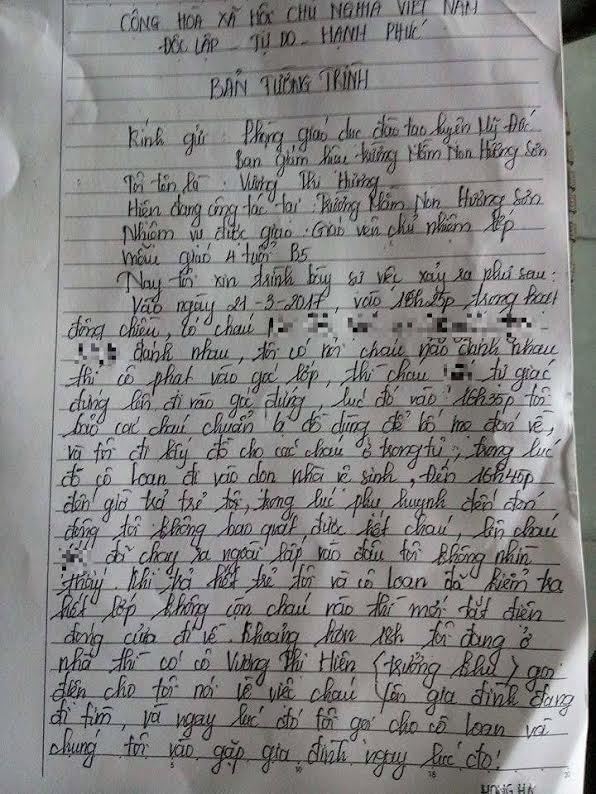 CỘNG HÒA XÃ HỘI CHỦ NGHĨA VIỆT NAM
ĐỘC LẬP - TỰ DO - HẠNH PHÚC
BẢN TƯỜNG TRÌNH
Kính gửi : Phòng giáo dục đào tạo huyện Mỹ Đức
Ban giám hiệu trường Mầm Non Hương Sơn
Tôi tên là : Vương Thị Hương
Hiện đang công tác tại : Trường Mầm Non Hương Sơn
Nhiệm vụ được giao : Giáo viên chủ nhiệm lớp
mẫu giáo 4 tuổi B5
Nay tôi xin trình bày sự việc xảy ra như sau :
Vào ngày 21-3-2017, vào 16h25p trong hoạt
động chiều, có cháu
đánh nhau, tôi có nói cháu nào đánh nhau
thì cô phạt vào góc lớp, thì cháu tự giác
đứng lên đi vào góc đứng, lúc đó vào 16h35p tôi
bảo các cháu chuẩn bị đồ dùng để bố mẹ đón về,
và tôi đi lấy đồ cho các cháu ở trong tủ, trong lúc
đó cô Loan đi vào dọn nhà vệ sinh, Đến 16h45p
đến giờ trả trẻ tôi, trong lúc phụ huynh đến đón
đông tôi không bao quát được hết cháu, lên cháu
đã chạy ra ngoài lấp vào đâu tôi không nhìn
thấy, khi trả hết trẻ tôi và cô Loan đã kiểm tra
hết lớp không còn cháu nào thì mới tắt điện
đóng cửa đi về. Khoảng hơn 18h tôi đang ở
nhà thì có cô Vương Thị Hiên (trưởng khu) gọi
điện cho tôi nói về việc cháu gia đình đang
đi tìm, và ngay lúc đó tôi gọi cho cô Loan và
chúng tôi vào gặp gia đình ngay lúc đó.
HONG HA